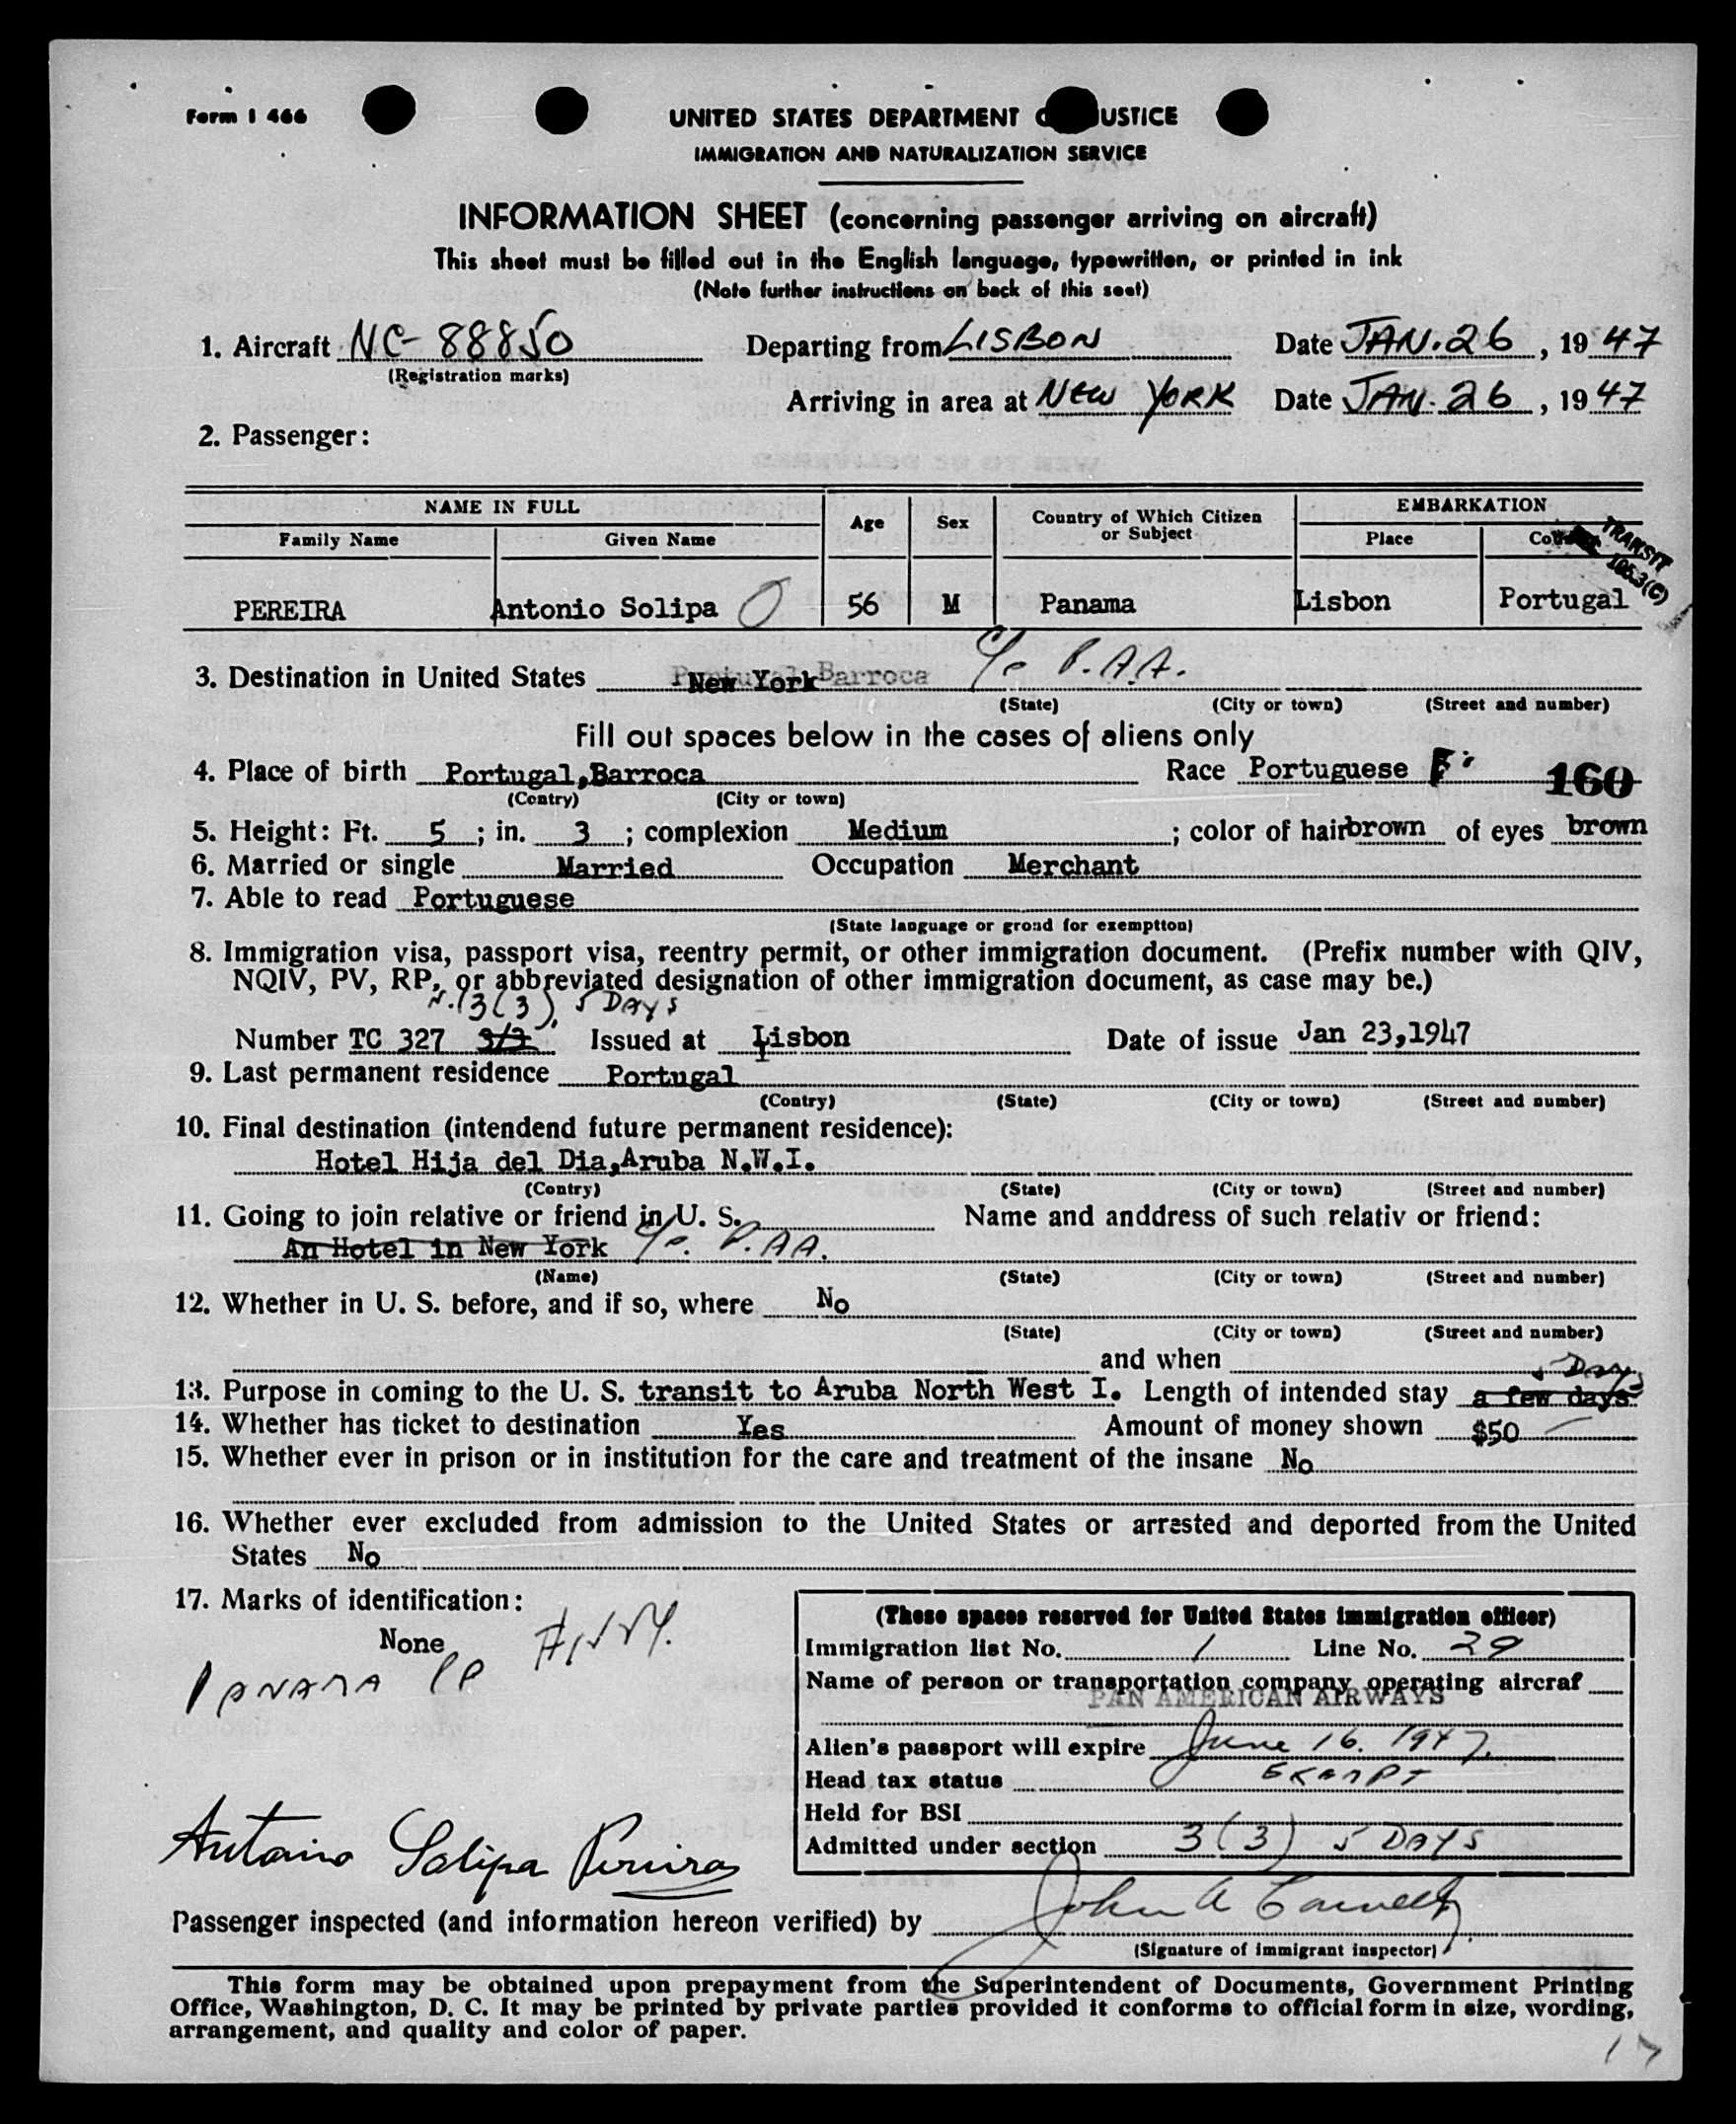 Form I 466
UNITED STATES DEPARTMENT O USTICE
IMMIGRATION AND NATURALIZATION SERVICE
INFORMATION SHEET (concerning passenger arriving on aircraft)
This sheet must be filled out in the English language, typewritten, or printed in ink
(Note further instructions on back of this seet)
1. Aircraft NC-88850 Departing from LISBON Date JAN. 26, 1947
(Registration marks)
Arriving in area at NEW YORK Date JAN. 26, 1947
2. Passenger:
NAME IN FULL Age Sex Country of Which Citizen or Subject EMBARKATION
Family Name Given Name Place
TRANSIT
105.3(C)
PEREIRA Antonio Solipa 56 M Panama Lisbon Portugal
3. Destination in United States New York Barroca C/o P.A.A.
(State) (City or town) (Street and number)
Fill out spaces below in the cases of aliens only
4. Place of birth Portugal,Barroca Race Portuguese 160
(Contry) (City or town)
5. Height: Ft. 5 ; in. 3 ; complexion Medium ; color of hair brown of eyes brown
6. Married or single Married Occupation Merchant
7. Able to read Portuguese
(State language or grond for exemption)
8. Immigration visa, passport visa, reentry permit, or other immigration document. (Prefix number with QIV,
NQIV, PV, RP, or abbreviated designation of other immigration document, as case may be.)
3(3) 5 DAYS
Number TC 327 3/3 Issued at Lisbon Date of issue Jan 23,1947
9. Last permanent residence Portugal
(Contry) (State) (City or town) (Street and number)
10. Final destination (intendend future permanent residence):
Hotel Hija del Dia,Aruba N.W.I.
(Contry) (State) (City or town) (Street and number)
11. Going to join relative or friend in U. S. Name and anddress of such relativ or friend:
An Hotel in New York C/o. P.AA.
(Name) (State) (City or town) (Street and number)
12. Whether in U. S. before, and if so, where No
(State) (City or town) (Street and number)
and when
5 Days
13. Purpose in coming to the U. S. transit to Aruba North West I. Length of intended stay a few days
14. Whether has ticket to destination Yes Amount of money shown $50
15. Whether ever in prison or in institution for the care and treatment of the insane No
16. Whether ever excluded from admission to the United States or arrested and deported from the United
States No
17. Marks of identification:
None
PANAMA PP
(These spaces reserved for United States immigration officer)
Immigration list No. 1 Line No. 29
Name of person or transportation company operating aircraf
PAN AMERICAN AIRWAYS
Alien's passport will expire June 16. 1947.
Head tax status EXEMPT
Held for BSI
Admitted under section 3(3) 5 DAYS
Antonio Solipa Pereira
Passenger inspected (and information hereon verified) by John A
(Signature of immigrant inspector)
This form may be obtained upon prepayment from the Superintendent of Documents, Government Printing
Office, Washington, D. C. It may be printed by private parties provided it conforms to official form in size, wording,
arrangement, and quality and color of paper.
17